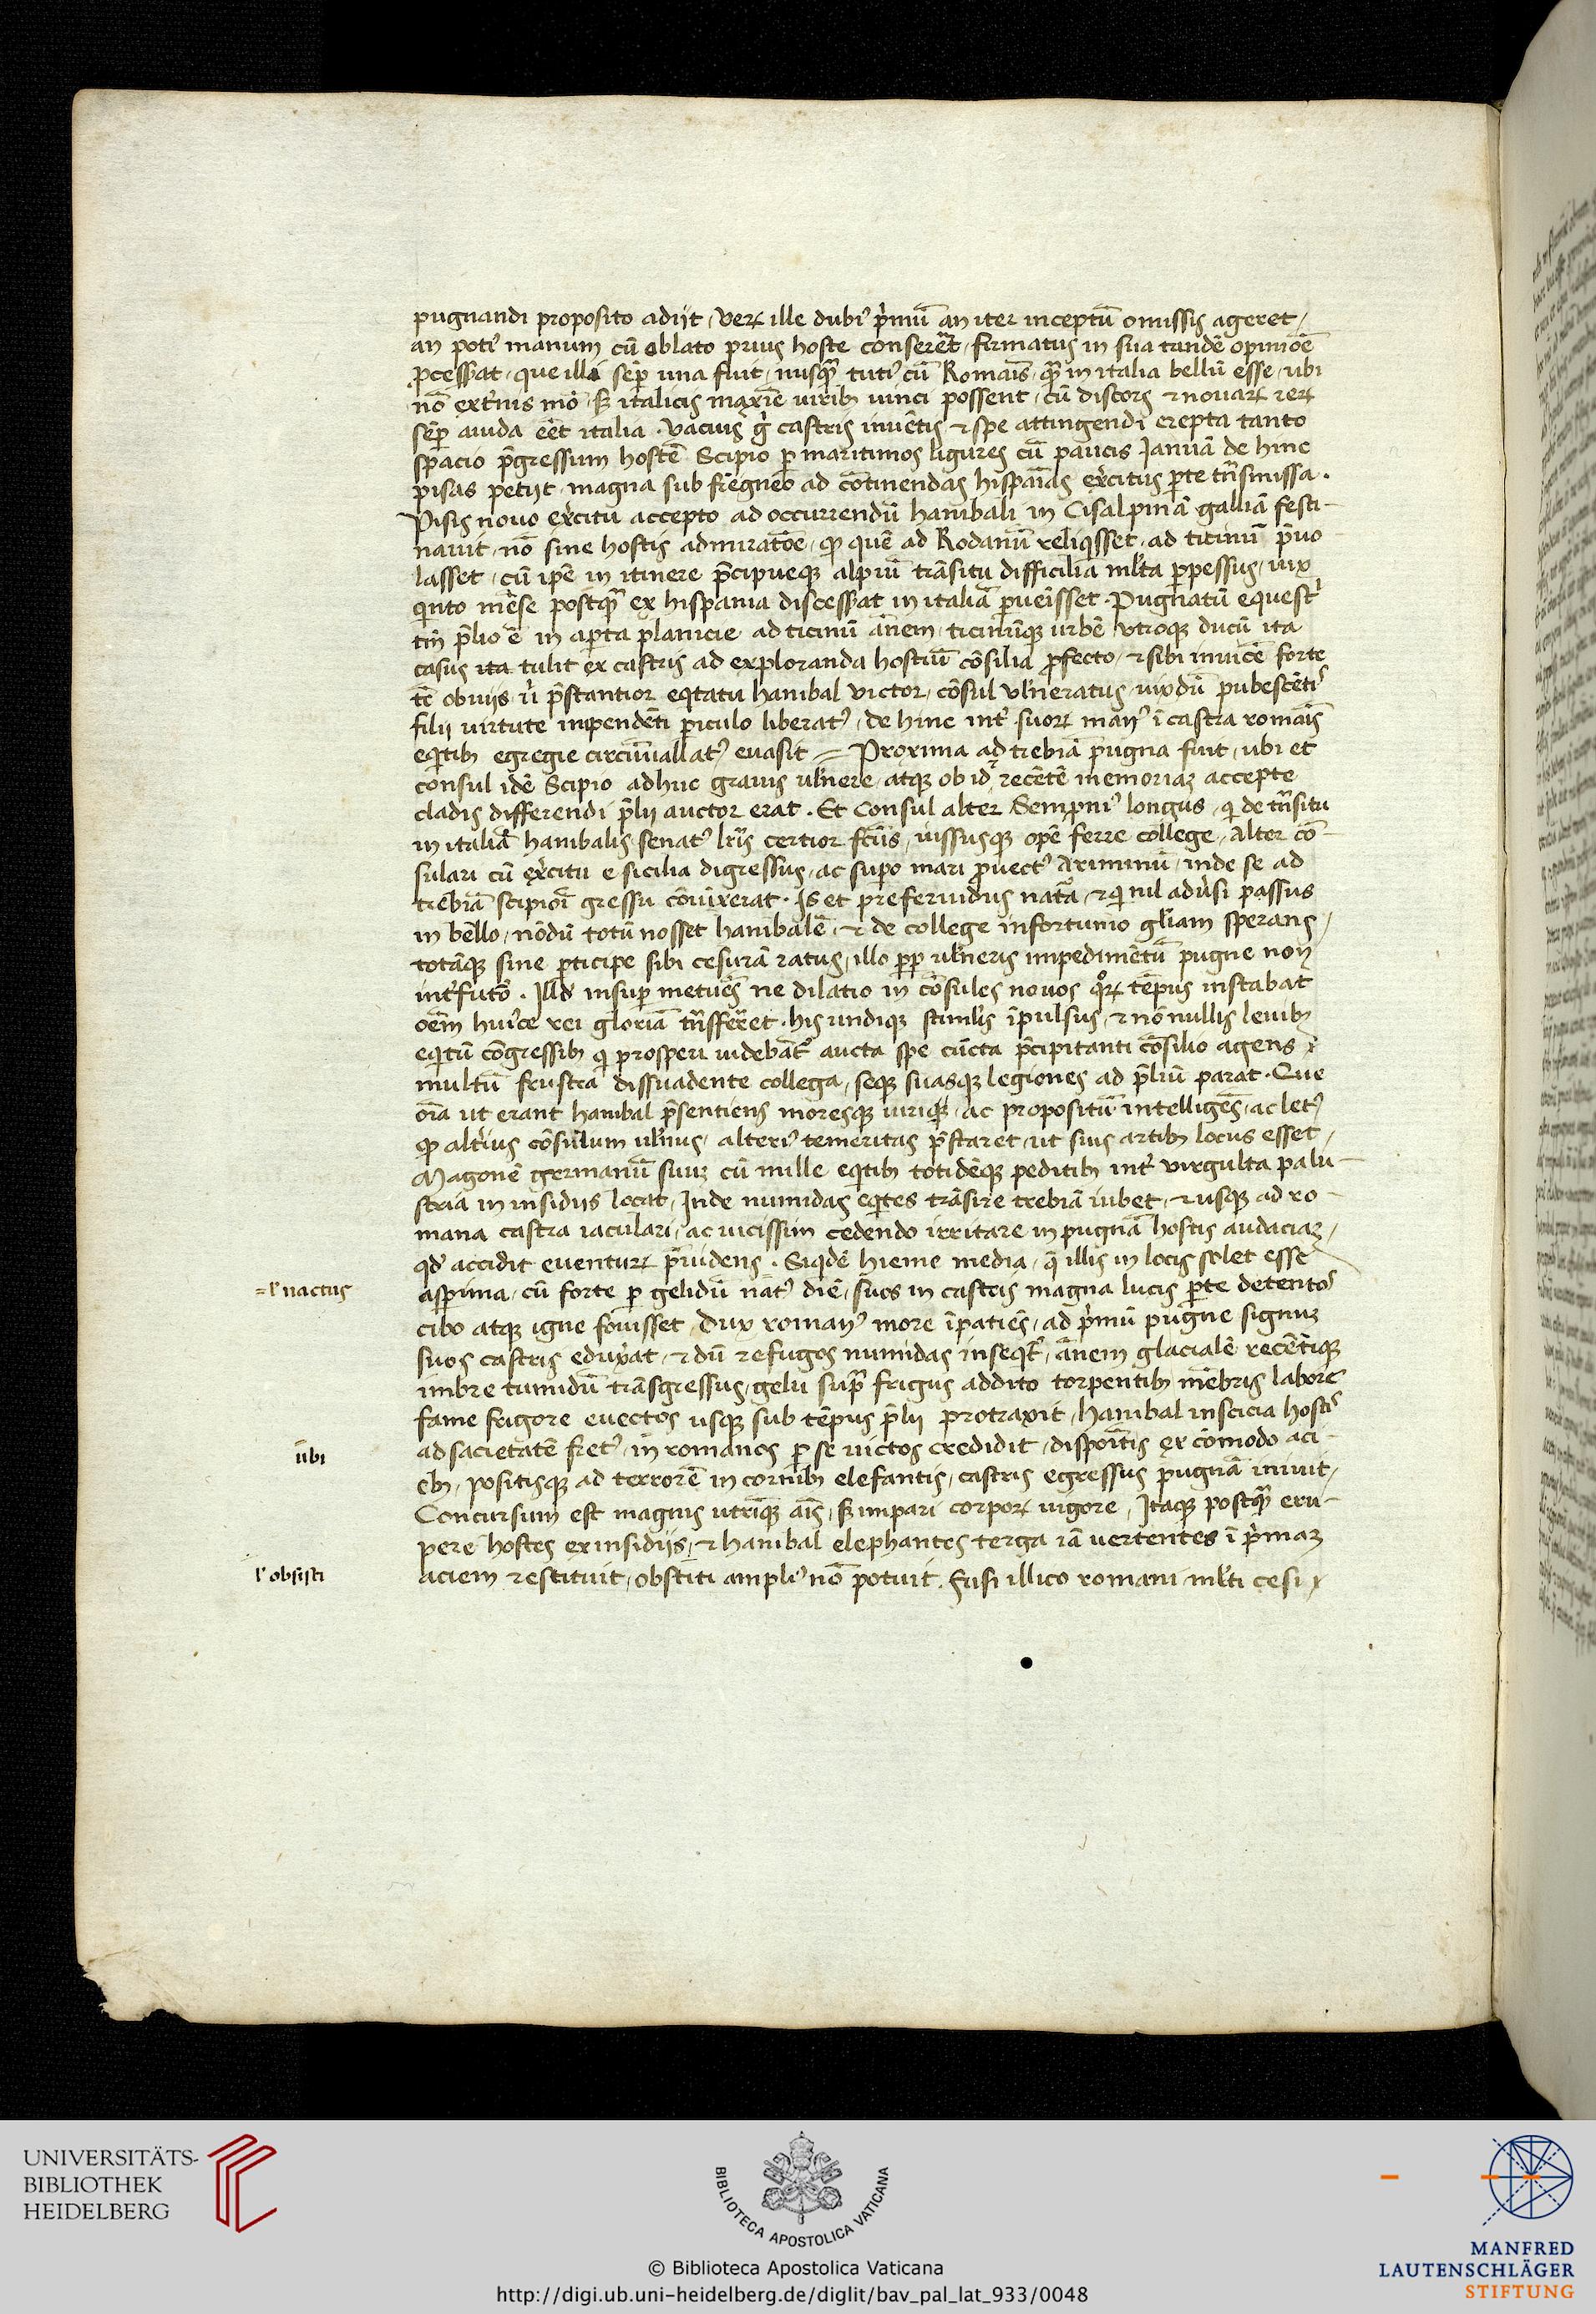 pugnandi proposito adijt / Veꝝ ille dubiꝰ p̓mū an iter inceptū omissis ageret /
an potiꝰ manum cū oblato prius hoste conseret / firmatus in sua tandē opiniōē
ꝓcesserat / que illi sēp una fuit / nusqᷓ tutiꝰ cū Romaīs / qᷓ in italia bellū esse / ubi
nō ext̓nis mō / sꝫ italicis maxīe uirib uinci possent / cū discors ⁊ nouaꝝ reꝝ
sēp auida eēt italia . Vacuis g̊ castris inuētis ⁊ spe attingendi erepta tanto
spacio p̄gressum hostē Scipio ꝑ maritimos ligures cū paucis Januā de hinc
pisas petijt / magna sub fr̄e gneo ad cōtinendas hispaīas exercitus ꝑte tn̄smissa .
Pisis nouo exercitu accepto ad occurrendū hanibali in Cisalpinā galliā festi-
nauit / nō sine hostis admiratōe / qꝫ quē ad Rodanū reliqsset / ad ticinū p̄uo
lasset / cū ip̄e in itinere p̄cipueqꝫ alpiū trāsitu difficilia ml̓ta ꝑpessus / uix
qnto mēse postqᷓ ex hispania discesserat in italiā ꝑueisset . Pugnatū equest̓
tn̄ p̄lio ē in aꝑta planicie ad ticinū ān̄em / ticinūqꝫ urbē utroqꝫ ducū ita
casus ita tulit ex castris ad exploranda hostiū cōsilia ꝓfecto / ⁊ sibi inuicē forte
tē obuijs ū p̄stantior eqtatu hanibal victor / cōsul vl̓neratus / uixdū pubescētiꝰ
filij uirtute inpendēti ꝑiculo liberatꝰ / de hinc int̓ suoꝝ manꝰ ī castra romaīs
eqtib egregie circūuallatꝰ euasit = Proxima ad trebiā pugna fuit / ubi et
consul idē Scipio adhuc grauis ul̓nere / atqꝫ ob id recētē memoriaꝫ accepte
cladis differendi p̄lij auctor erat . Et Consul alter Semproniꝰ longus / q de tn̄situ
in italiā hanibalis senatꝰ lr̄is certior fcūs / iussusqꝫ opē ferre college / alter cō-
sulari cū exercitu e sicilia digressus / ac supo mari ꝓuectꝰ Ariminū / inde se ad
trebiā scipioī gressu cōiūxerat . Is et preferuidus natᷓa / ⁊ q nil adūsi passus
in bello / nōdū totū nosset hanibalē / ⁊ de college infortunio gl̄iam sperans /
totāqꝫ sine ꝑticipe sibi cesurā ratus / illo ꝓp ul̓neris impedimētū pugne non
int̓futo . Illd insuꝑ metuēs ne dilatio in cōsules nouos qͦꝝ tēpus instabat
oēm huīce rei gloriā tn̄sfferet . his undiqꝫ stimul̓is īpulsus / ⁊ nō nullis leuib
eqtū cōgressib q prosperi uidebāt̓ aucta spe cūcta p̄cipitanti cōsilio agens /
multū frustra dissuadente collega / seqꝫ suasqꝫ legiones ad p̄liū parat . Que
oīa ut erant hanibal p̄sentiens moresqꝫ uiriqꝫ / ac propositū intelligēs / ac letꝰ
qꝫ alt̓ius cōsulum ul̓nus / alteriꝰ temeritas p̄staret / ut suis artib locus esset /
Magonē germanū suuꝫ cū mille eqtib totidēqꝫ peditib int̓ virgulta palu-
stria in insidijs locat / Inde numidas eqtes trāsire trebiā iubet / ⁊ usqꝫ ad ro-
mana castra iaculari / ac uicissim cedendo irritare in pugnā hostis audaciaꝫ /
qd̓ accidit euentuꝝ p̄uidens . Siqdē hieme media / q̄ illis in locis solet esse
asꝑima / cū forte ꝑ gelidū nat̓ꝰ diē / suos in castris magna lucis ꝑte detentoꝰ
=l̓ nactus
cibo atqꝫ igne fouisset / Dux romanꝰ more īpatiēs / ad p̓mū pugne signuꝫ
suos castris eduxerat / ⁊ dū refugos numidas inseqt̓ / ānem glacialē recētiqꝫ
imbre tumidū trāsgressus / gelu supᷓ frigus addito torpentib mēbris labore
fame frigore euectos usqꝫ sub tēpus p̄lij protraxit / hanibal inscicia hostiꝰ
ad sacietatē fretꝰ / in romanos ꝑ se uictos credidit / dispoītis ex cōmodo aci-
ūbi
eb / positisqꝫ ad terrorē in cornib elefantis / castris egressus pugnā iniuit /
Concursum est magnis utriqꝫ aīs / sꝫ impari corpoꝝ uigore / Itaqꝫ postqᷓ eru-
pere hostes ex insidijs / ⁊ hanibal elephantes terga iā uertentes ī p̓maꝫ
aciem restituit / obstiti ampliꝰ nō potuit . Fusi illico romani ml̓ti cesi /
l̓ obsisti
UNIVERSITÄTS-
BIBLIOTHEK
HEIDELBERG
BIBLIOTECA APOSTOLICA VATICANA
© Biblioteca Apostolica Vaticana
http://digi.ub.uni-heidelberg.de/diglit/bav_pal_lat_933/0048
MANFRED
LAUTENSCHLÄGER
STIFTUNG